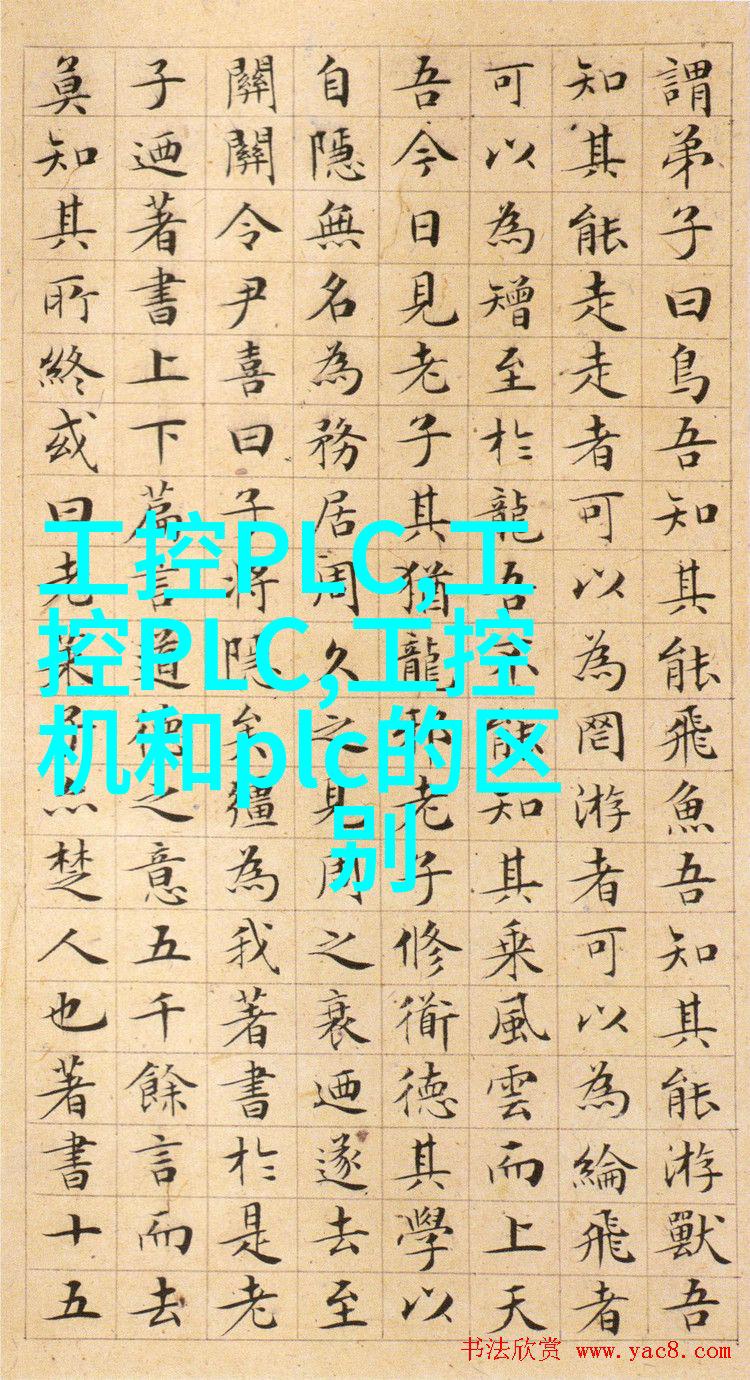 謂弟子曰鳥吾知其能飛魚吾知其能游獸吾
知其能走走者可以為罔游者可以為綸飛者
可以為矰至於龍吾不能知其乘風雲而上天
吾今日見老子其猶龍邪老子修衜德其學以
自隱無名為務居周久之見周之衰迺遂去至
關關令尹喜曰子將隱矣彊為我著書於是老
子迺著書上下篇言道德之意五千餘言而去
莫知其所終或曰老萊子亦楚人也著書十五
工控PLC,工
控PLC,工控
机和plc的区
别
书法欣赏 www.yac8.com